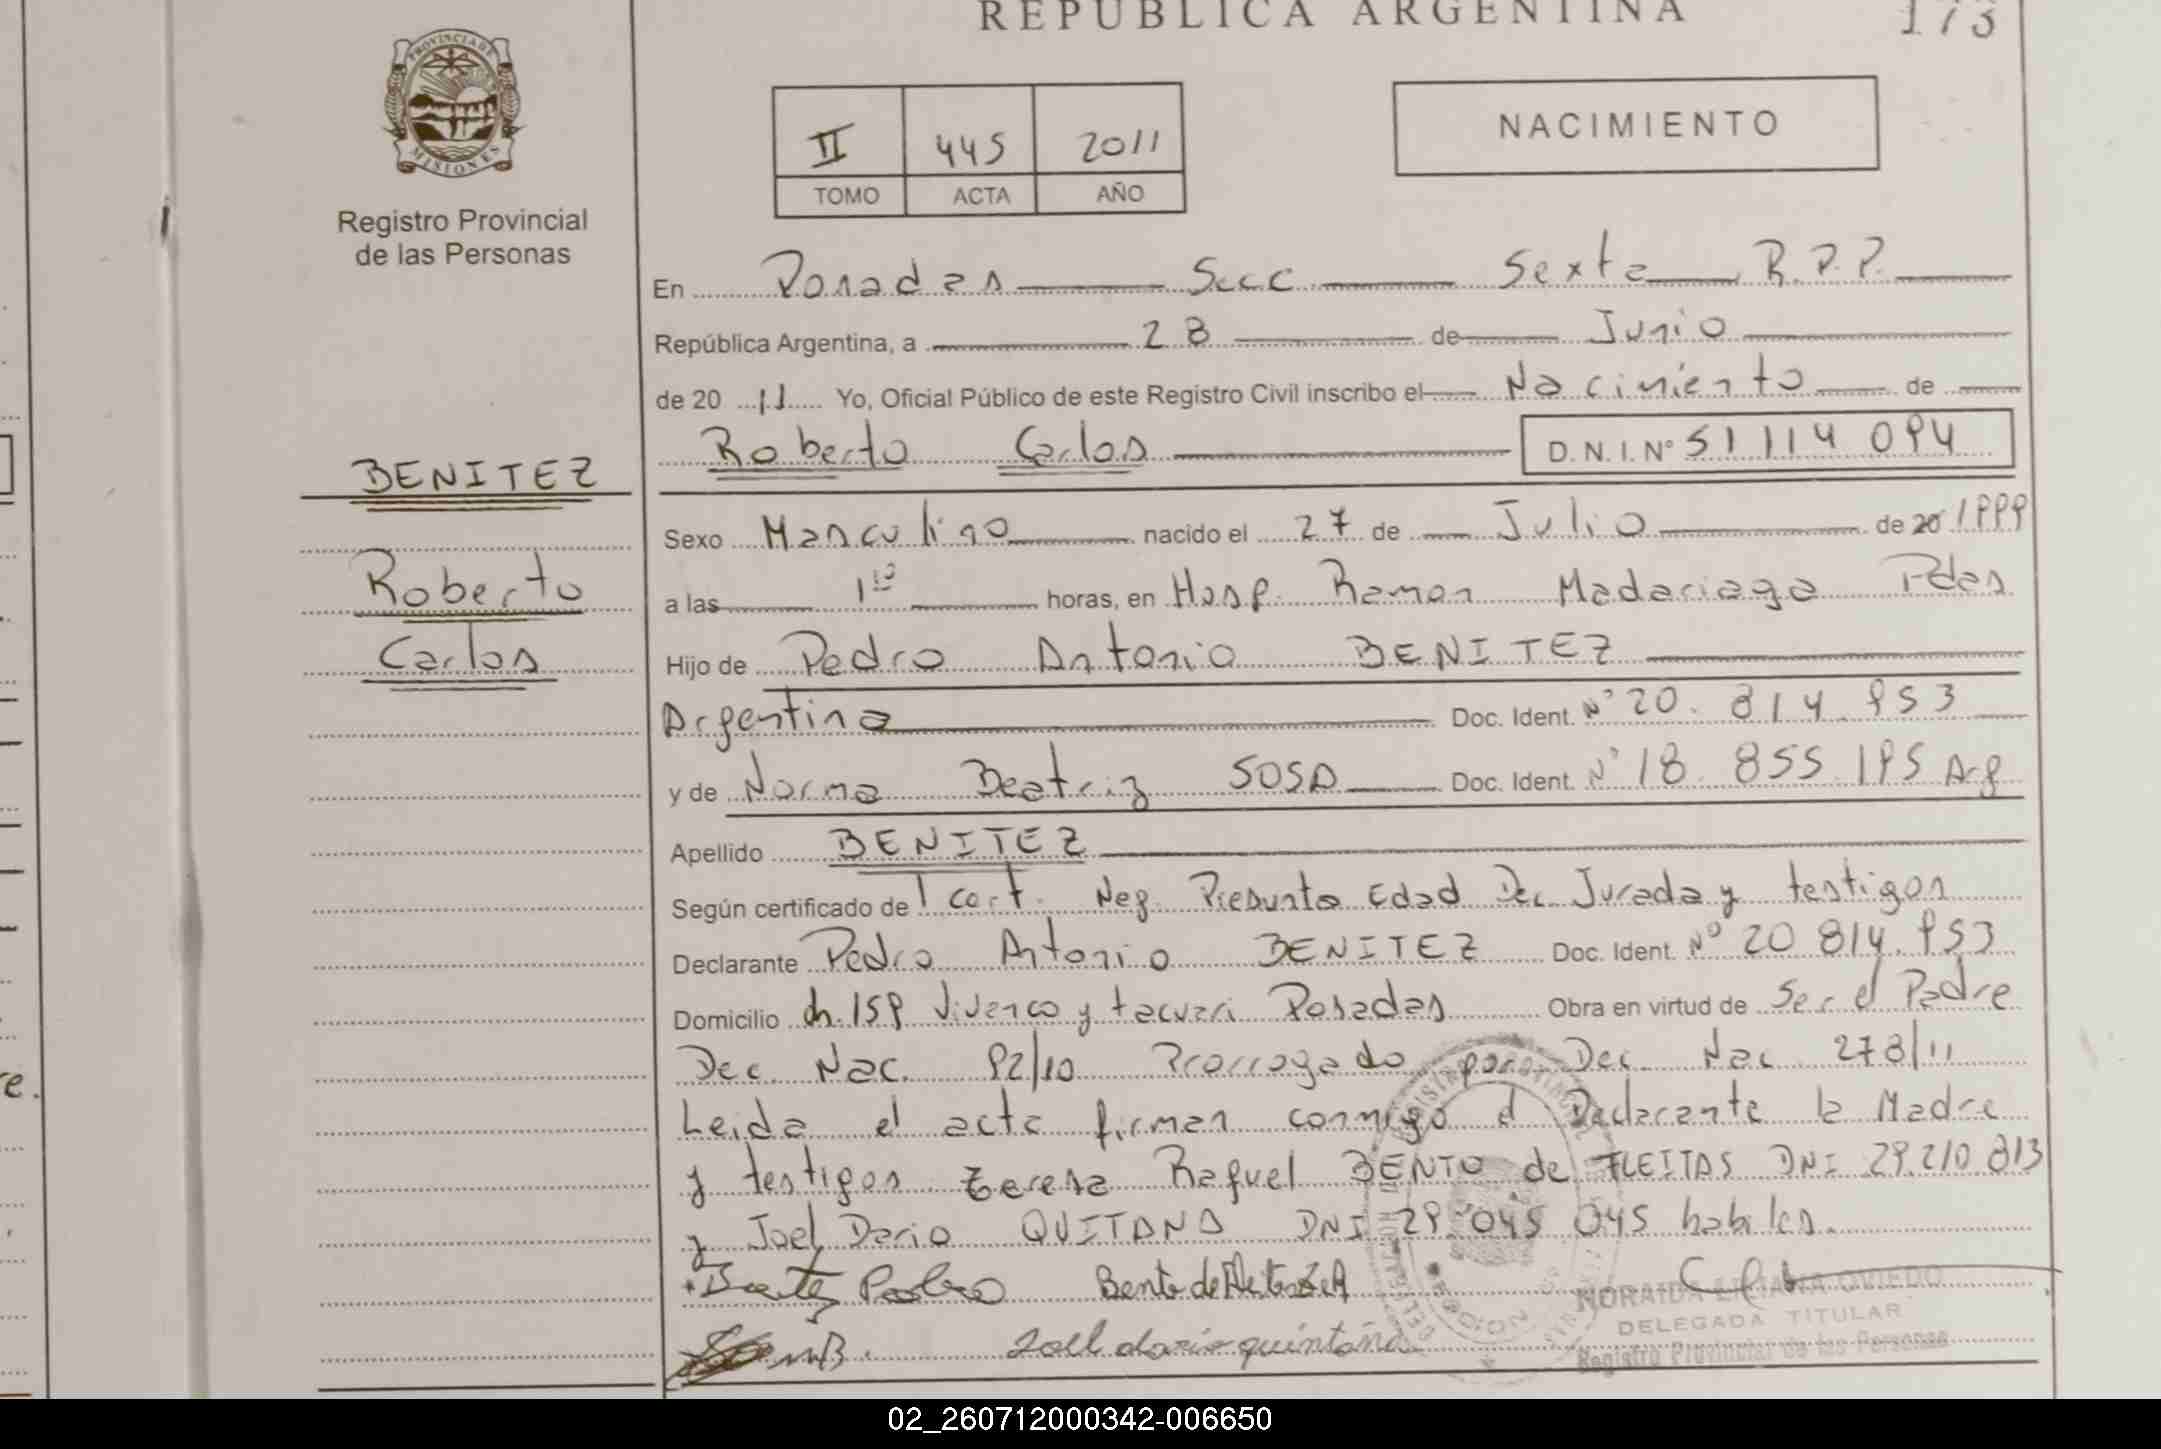 REPUBLICA ARGENTINA
173
PROVINCIA DE
MISIONES
Registro Provincial
de las Personas
II 445 2011
TOMO ACTA AÑO
NACIMIENTO
En Posadas Secc Sexta R.P.P.
República Argentina, a 28 de Junio
de 20 11 Yo, Oficial Público de este Registro Civil inscribo el Nacimiento de
Roberto Carlos D.N.I. Nº 51 114 094
BENITEZ
Roberto
Carlos
Sexo Masculino nacido el 27 de Julio de 20 1999
a las 1 horas, en Hosp. Ramon Madariaga Pdas
Hijo de Pedro Antonio BENITEZ
Argentina Doc. Ident. Nº 20. 814. 953
y de Norma Beatriz SOSA Doc. Ident. Nº 18. 855 195 Arg
Apellido BENITEZ
Según certificado de 1 cert. Neg. Presunta Edad Dec Jurada y testigos
Declarante Pedro Antonio BENITEZ Doc. Ident. Nº 20 814. 953
Domicilio ch. 159 Vivanco y tacuari Posadas Obra en virtud de Ser el Padre
Dec Nac. 92/10 Prorrogado por Dec Nac 278/11
Leida el acta firman conmigo el Declarante la Madre
y testigos teresa Raquel BENTO de FLEITAS DNI 29.210 813
y Joel Dario QUITANA DNI 29.045 045 habiles.
Bento de Fleitas
Joel dario quintana
NORAIDA LILIANA OVIEDO
DELEGADA TITULAR
Registro Provincial de las Personas
02_260712000342-006650